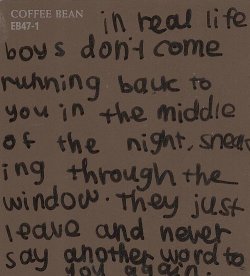 COFFEE BEAN
EB47-1
in real life
boys don't come
running back to
you in the middle
of the night, sneak
ing through the
window. they just
leave and never
say another word to
you again.